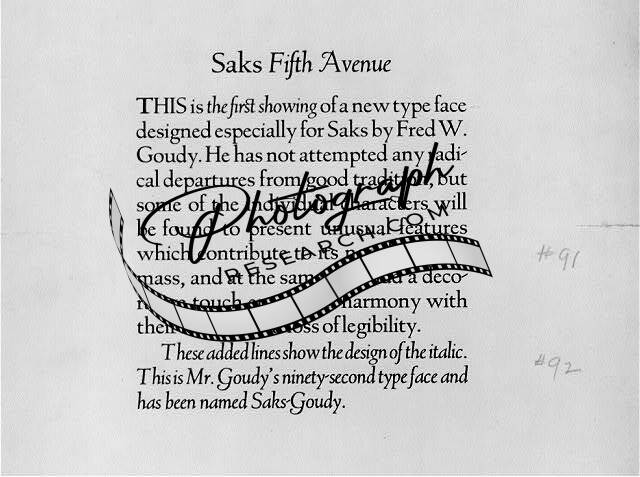 Saks Fifth Avenue
THIS is the first showing of a new type face
designed especially for Saks by Fred W.
Goudy. He has not attempted any radi-
cal departures from good tradition, but
some of the individual characters will
be found to present unusual features
which contribute to its
mass, and at the same a deco-
touch harmony with
their loss of legibility.
These added lines show the design of the italic.
This is Mr. Goudy's ninety-second type face and
has been named Saks-Goudy.
Photograph
RESEARCH.COM
#91
#92